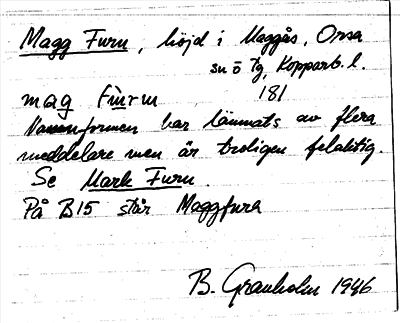 Magg Furu, höjd i Maggås, Orsa
sn ö tg, Kopparb. l.
mag fùru 181
Namnformen har lämnats av flera
meddelare men är troligen felaktig.
Se Mark Furu.
På B15 står Maggfura
B. Granholm 1946